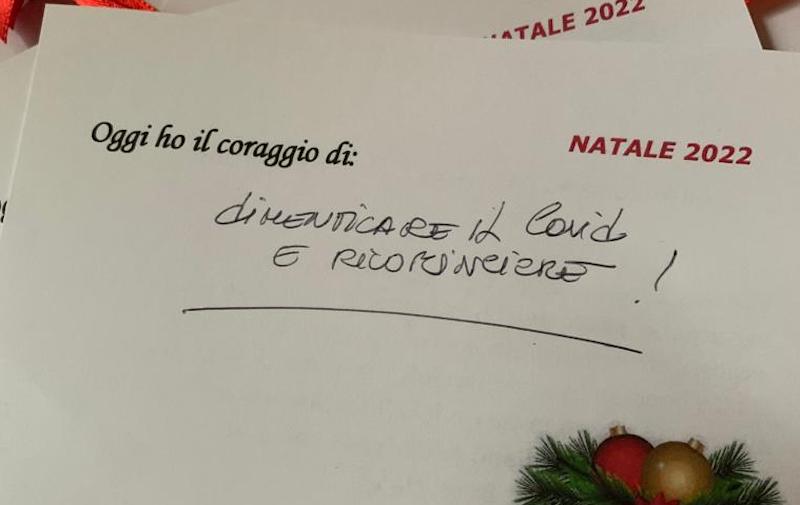 NATALE 2022
Oggi ho il coraggio di:
NATALE 2022
dimenticare il Covid
E RICOMINCIERE !